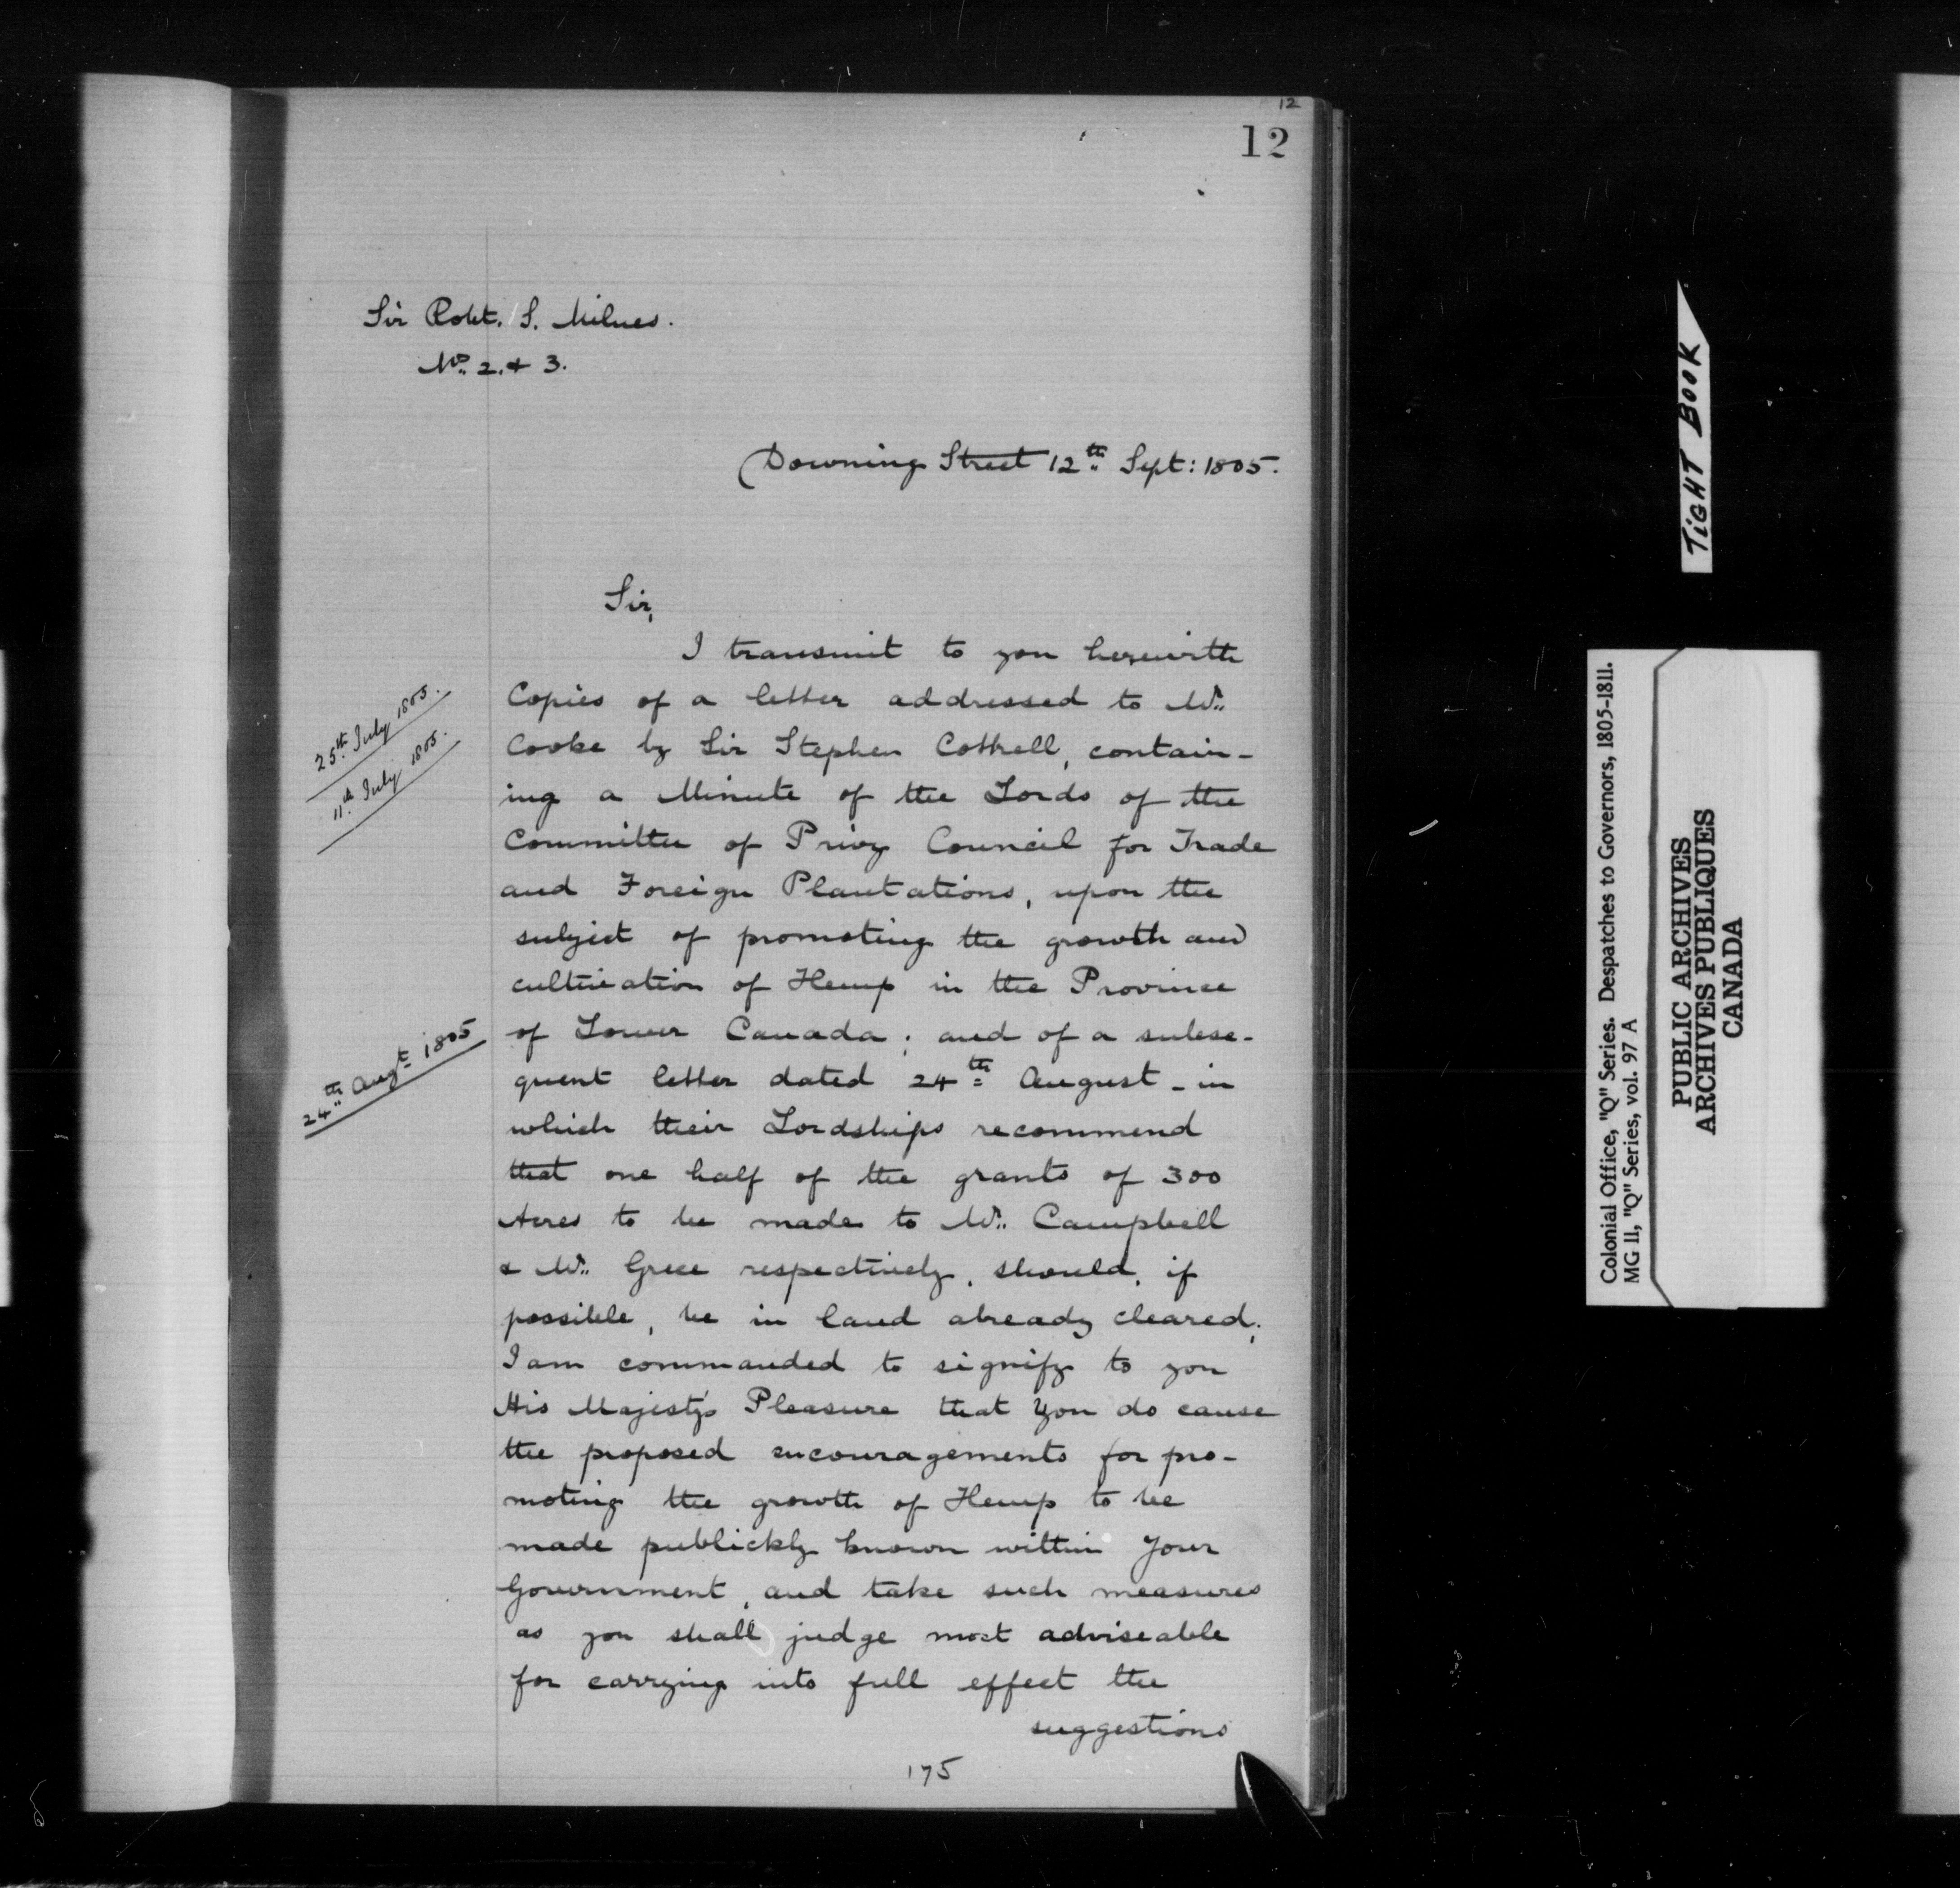 12
12
Sir Robt. S. Milnes.
Nos. 2. & 3.
Downing Street 12th Sept: 1805.
Sir,
I transmit to you herewith
Copies of a letter addressed to Mr.
Cooke by Sir Stephen Cottrell, contain-
ing a Minute of the Lords of the
Committee of Privy Council for Trade
and Foreign Plantations, upon the
subject of promoting the growth and
cultivation of Hemp in the Province
of Lower Canada; and of a subse-
quent letter dated 24th August - in
which their Lordships recommend
that one half of the grants of 300
Acres to be made to Mr. Campbell
& Mr. Grece respectively, should, if
possible, be in land already cleared;
I am commanded to signify to you
His Majesty's Pleasure that You do cause
the proposed encouragements for pro-
moting the growth of Hemp to be
made publickly known within Your
Government, and take such measures
as you shall judge most adviseable
for carrying into full effect the
suggestions
175
25th July 1805.
11th July 1805.
24th Augt 1805
TiGHT BOOK
Colonial Office, "Q" Series. Despatches to Governors, 1805-1811.
MG 11, "Q" Series, vol. 97 A
PUBLIC ARCHIVES
ARCHIVES PUBLIQUES
CANADA